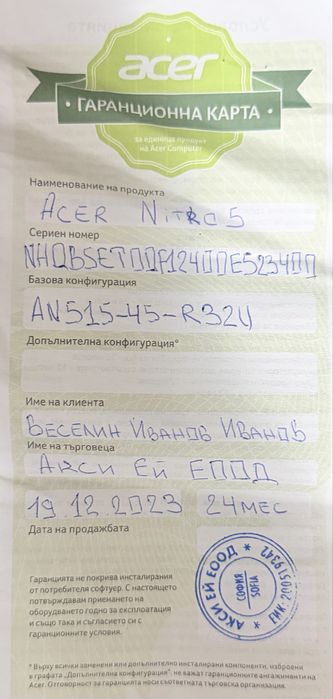 acer
ГАРАНЦИОННА КАРТА
за единица продукт
на Acer Computer
Наименование на продукта
ACER NITRO 5
Сериен номер
NHQBSET00P12400E523400
Базова конфигурация
AN515-45-R32U
Допълнителна конфигурация*
Име на клиента
ВЕСЕЛИН ИВАНОВ ИВАНОВ
Име на търговеца
АКСИ ЕЙ ЕООД
19.12.2023 24 МЕС
Дата на продажбата
Гаранцията не покрива инсталирания
от потребителя софтуер. С настоящето
потвърждавам приемането на
оборудването годно за експлоатация
и също така и съгласието си с
гаранционните условия.
* АКСИ ЕЙ ЕООД *
ЕИК: 200519342
СОФИЯ
SOFIA
* Върху всички заменени или допълнително инсталирани компоненти, изброени
в графата „Допълнителна конфигурация", не важат гаранционните ангажименти на
Acer. Отговорност за гаранция носи съответната търговска организация.